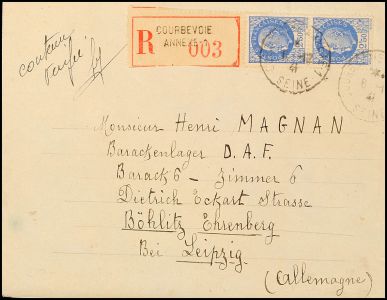 COURBEVOIE
ANNEXE
R 003
41
SEINE
41
Monsieur Henri MAGNAN
Barackenlager D.A.F.
Barack 6 - Zimmer 6
Dietrich Eckart Strasse
Böhlitz Ehrenberg
Bei Leipzig
(Allemagne)